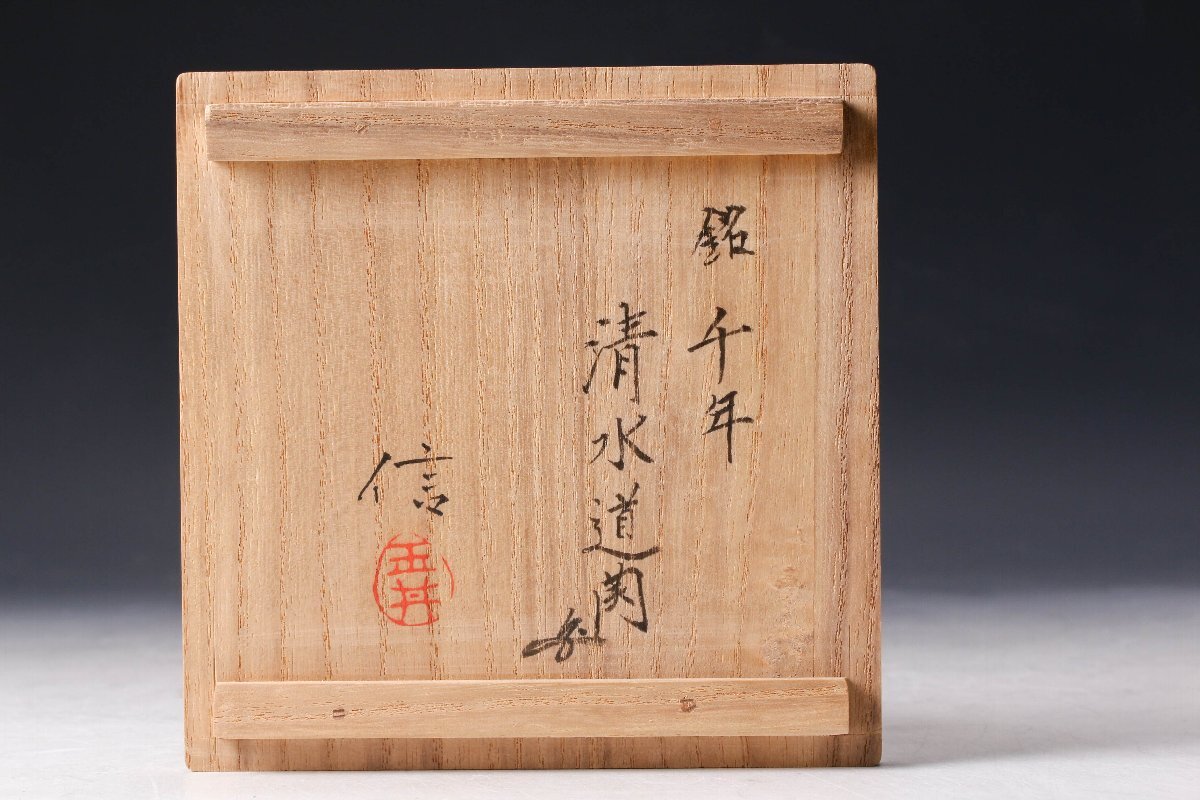 銘 千年
清水道関
信